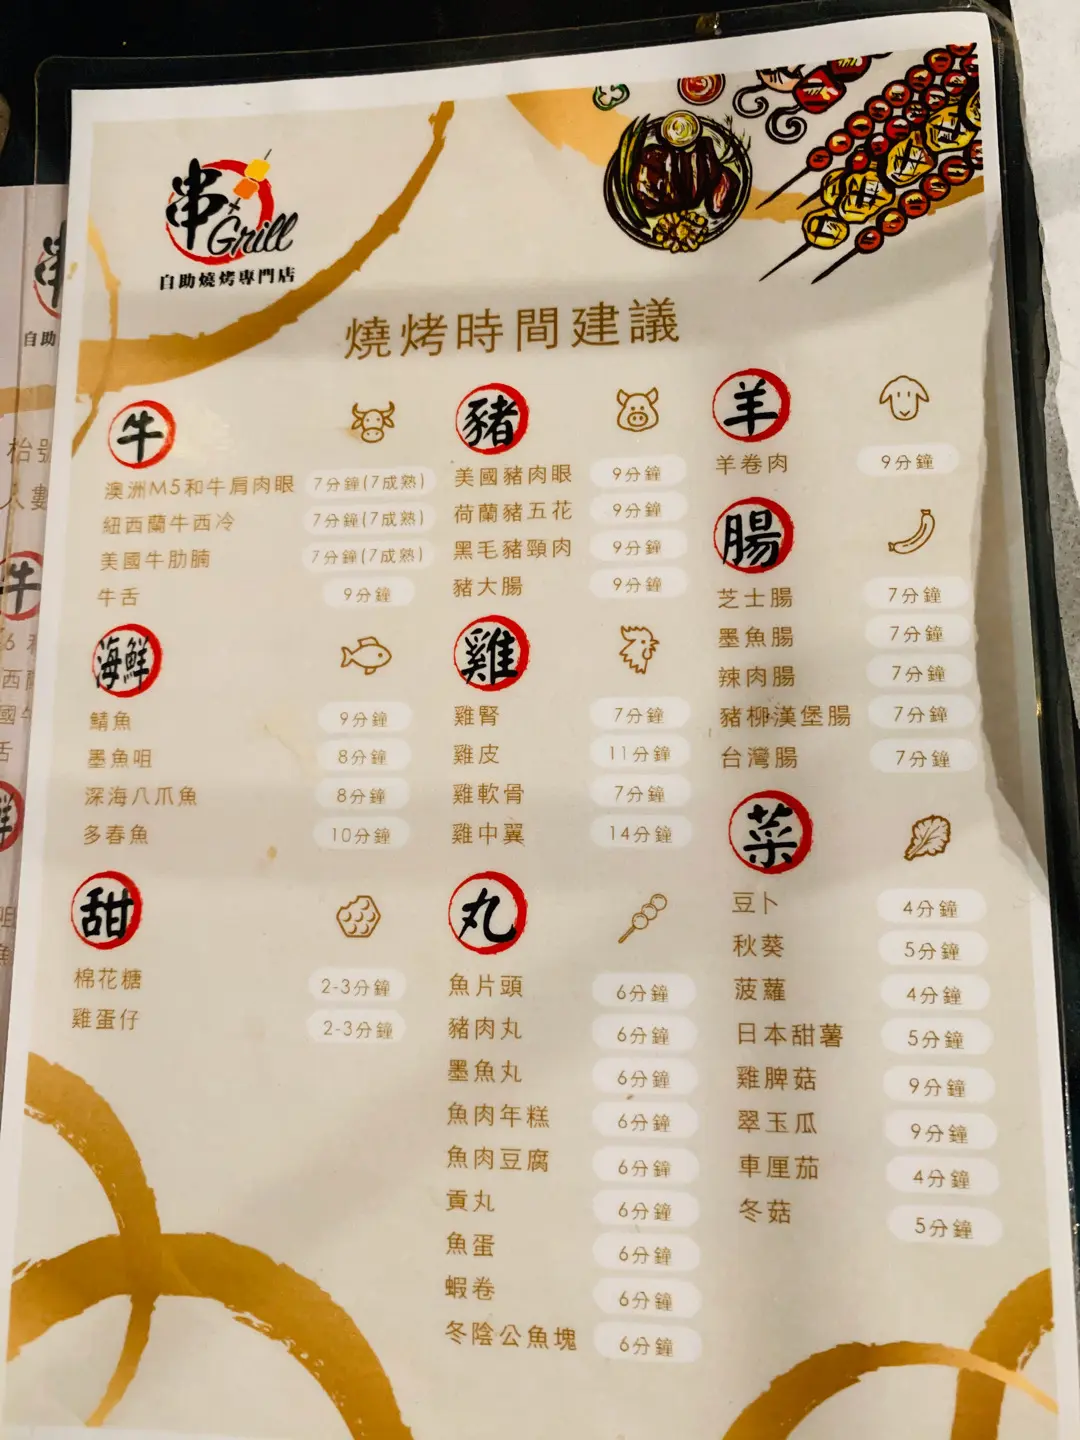 串
Grill
自助燒烤專門店
燒烤時間建議
牛
澳洲M5和牛肩肉眼 7分鐘(7成熟)
紐西蘭牛西冷 7分鐘(7成熟)
美國牛肋腩 7分鐘(7成熟)
牛舌 9分鐘
海鮮
鯖魚 9分鐘
墨魚咀 8分鐘
深海八爪魚 8分鐘
多春魚 10分鐘
甜
棉花糖 2-3分鐘
雞蛋仔 2-3分鐘
豬
美國豬肉眼 9分鐘
荷蘭豬五花 9分鐘
黑毛豬頸肉 9分鐘
豬大腸 9分鐘
雞
雞腎 7分鐘
雞皮 11分鐘
雞軟骨 7分鐘
雞中翼 14分鐘
丸
魚片頭 6分鐘
豬肉丸 6分鐘
墨魚丸 6分鐘
魚肉年糕 6分鐘
魚肉豆腐 6分鐘
貢丸 6分鐘
魚蛋 6分鐘
蝦卷 6分鐘
冬陰公魚塊 6分鐘
羊
羊卷肉 9分鐘
腸
芝士腸 7分鐘
墨魚腸 7分鐘
辣肉腸 7分鐘
豬柳漢堡腸 7分鐘
台灣腸 7分鐘
菜
豆卜 4分鐘
秋葵 5分鐘
菠蘿 4分鐘
日本甜薯 5分鐘
雞脾菇 9分鐘
翠玉瓜 9分鐘
車厘茄 4分鐘
冬菇 5分鐘
自助
人數
牛